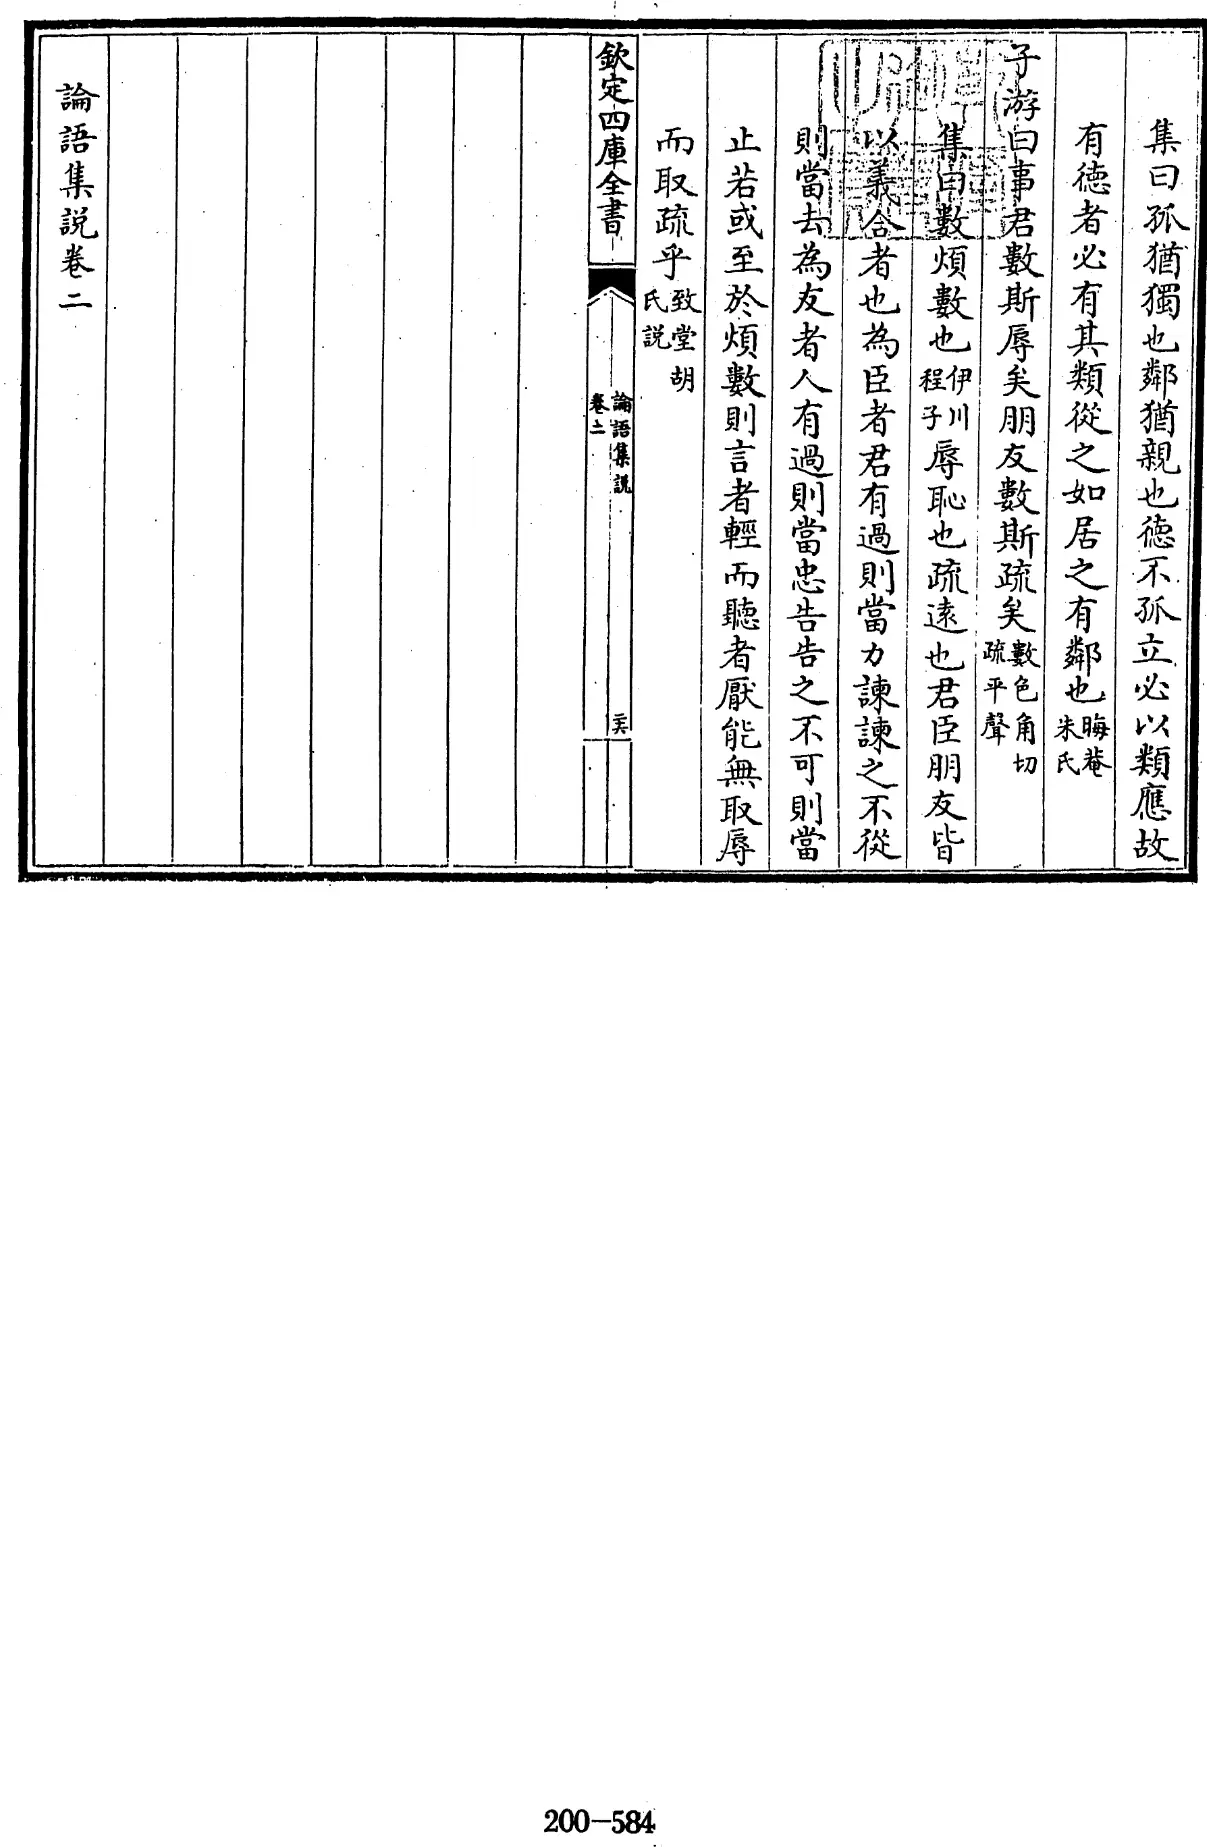 集曰孤猶獨也鄰猶親也德不孤立必以類應故
有德者必有其類從之如居之有鄰也晦菴朱氏
子游曰事君數斯辱矣朋友數斯疏矣數色角切疏平聲
集曰數煩數也伊川程子辱恥也疏逺也君臣朋友皆
以義合者也為臣者君有過則當力諫諫之不從
則當去為友者人有過則當忠告告之不可則當
止若或至於煩數則言者輕而聽者厭能無取辱
而取疏乎致堂胡氏說
欽定四庫全書
論語集說
卷二
二六
論語集說卷二
200-584